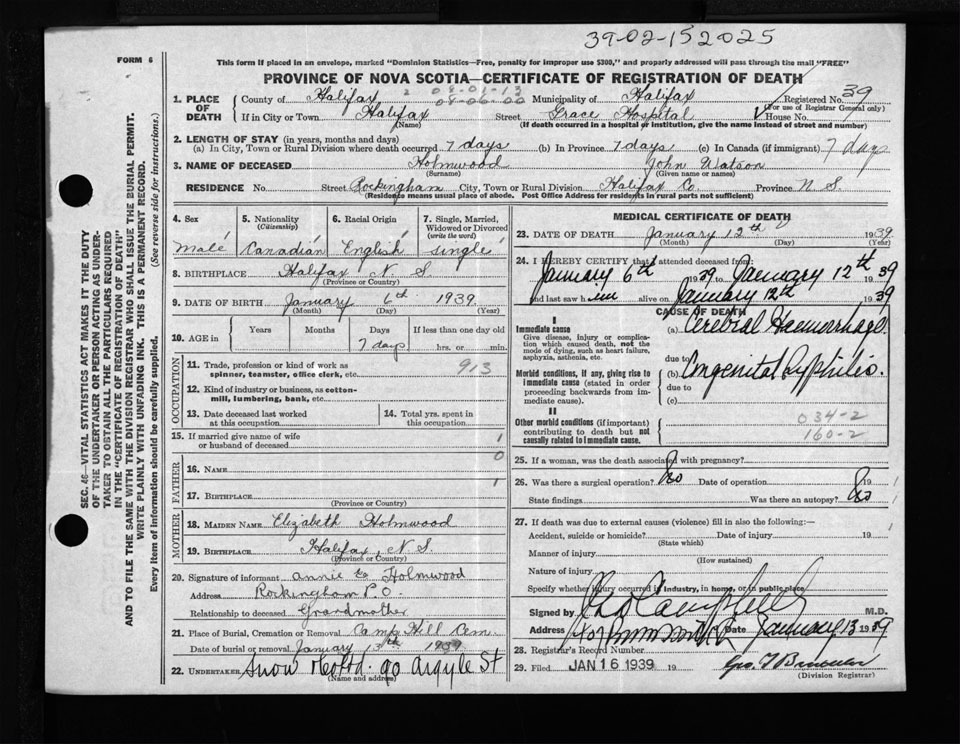 39-02-152025
FORM 6
This form if placed in an envelope, marked "Dominion Statistics—Free, penalty for improper use $300," and properly addressed will pass through the mail "FREE"
PROVINCE OF NOVA SCOTIA—CERTIFICATE OF REGISTRATION OF DEATH
1. PLACE OF DEATH
County of Halifax 2 08-01-13 Municipality of Halifax Registered No. 39
08-06-00 (For use of Registrar General only)
If in City or Town Halifax Street Grace Hospital House No.
(Name) (If death occurred in a hospital or institution, give the name instead of street and number)
2. LENGTH OF STAY (in years, months and days)
(a) In City, Town or Rural Division where death occurred 7 days (b) In Province 7 days (c) In Canada (if immigrant) 7 days
3. NAME OF DECEASED Holmwood John Watson
(Surname) (Given name or names)
RESIDENCE No. Street Rockingham City, Town or Rural Division Halifax Co. Province N.S.
(Residence means usual place of abode. Post Office Address for residents in rural parts not sufficient)
4. Sex
Male
5. Nationality
(Citizenship)
Canadian
6. Racial Origin
English
7. Single, Married,
Widowed or Divorced
(write the word)
single
8. BIRTHPLACE Halifax N.S.
(Province or Country)
9. DATE OF BIRTH January 6th 1939
(Month) (Day) (Year)
10. AGE in
Years Months Days If less than one day old
7 days hrs. or min.
OCCUPATION
11. Trade, profession or kind of work as
spinner, teamster, office clerk, etc. 913
12. Kind of industry or business, as cotton-
mill, lumbering, bank, etc.
13. Date deceased last worked
at this occupation
14. Total yrs. spent in
this occupation
15. If married give name of wife
or husband of deceased 1
0
FATHER
16. NAME
1
17. BIRTHPLACE
(Province or Country)
MOTHER
18. MAIDEN NAME Elizabeth Holmwood
19. BIRTHPLACE Halifax, N.S.
(Province or Country)
20. Signature of informant Annie E Holmwood
Address Rockingham P.O.
Relationship to deceased Grandmother
21. Place of Burial, Cremation or Removal Camp Hill Cem.
Date of burial or removal January 13th 1939
22. UNDERTAKER Snow & Co Ltd. 90 Argyle St
(Name and address)
MEDICAL CERTIFICATE OF DEATH
23. DATE OF DEATH January 12th 1939
(Month) (Day) (Year)
24. I HEREBY CERTIFY that I attended deceased from:
January 6th 1939 to January 12th 1939
and last saw him alive on January 12th 1939
CAUSE OF DEATH
I
Immediate cause
Give disease, injury or complica-
tion which caused death, not the
mode of dying, such as heart failure,
asphyxia, asthenia, etc.
(a) Cerebral Haemorrhage.
due to
Morbid conditions, if any, giving rise to
immediate cause (stated in order
proceeding backwards from im-
mediate cause).
(b) Congenital Syphilis.
due to
(c)
II
Other morbid conditions (if important)
contributing to death but not
causally related to immediate cause.
034-2
160-2
25. If a woman, was the death associated with pregnancy?
26. Was there a surgical operation? No Date of operation 19
State findings Was there an autopsy? No
27. If death was due to external causes (violence) fill in also the following:—
Accident, suicide or homicide? Date of injury 19
(State which)
Manner of injury
(How sustained)
Nature of injury
Specify whether injury occurred in industry, in home, or in public place
Signed by M.D.
Address Date January 13 1939
28. Registrar's Record Number
29. Filed JAN 16 1939 19
(Division Registrar)
SEC. 46—VITAL STATISTICS ACT MAKES IT THE DUTY
OF THE UNDERTAKER OR PERSON ACTING AS UNDER-
TAKER TO OBTAIN ALL THE PARTICULARS REQUIRED
IN THE "CERTIFICATE OF REGISTRATION OF DEATH"
AND TO FILE THE SAME WITH THE DIVISION REGISTRAR WHO SHALL ISSUE THE BURIAL PERMIT.
WRITE PLAINLY WITH UNFADING INK. THIS IS A PERMANENT RECORD.
Every item of information should be carefully supplied. (See reverse side for instructions.)